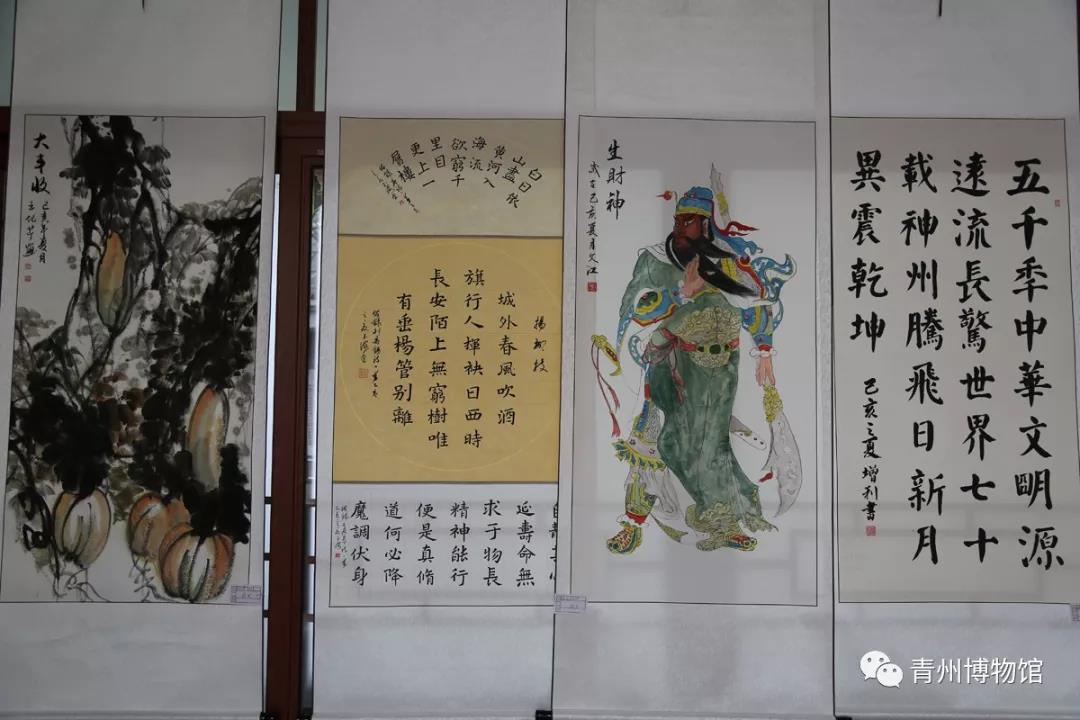 大丰收
己亥年夏月
白日依
山盡
黄河入
海流
欲窮千
里目
更上一
層樓
楊柳枝
城外春風吹酒
旗行人揮袂日西時
長安陌上無窮樹唯
有垂楊管别離
延壽命無
求于物長
精神能行
便是真脩
道何必降
魔調伏身
生財神
己亥夏月文江
五千年中華文明源
遠流長驚世界七十
載神州騰飛日新月
異震乾坤
己亥之夏增利書
青州博物馆